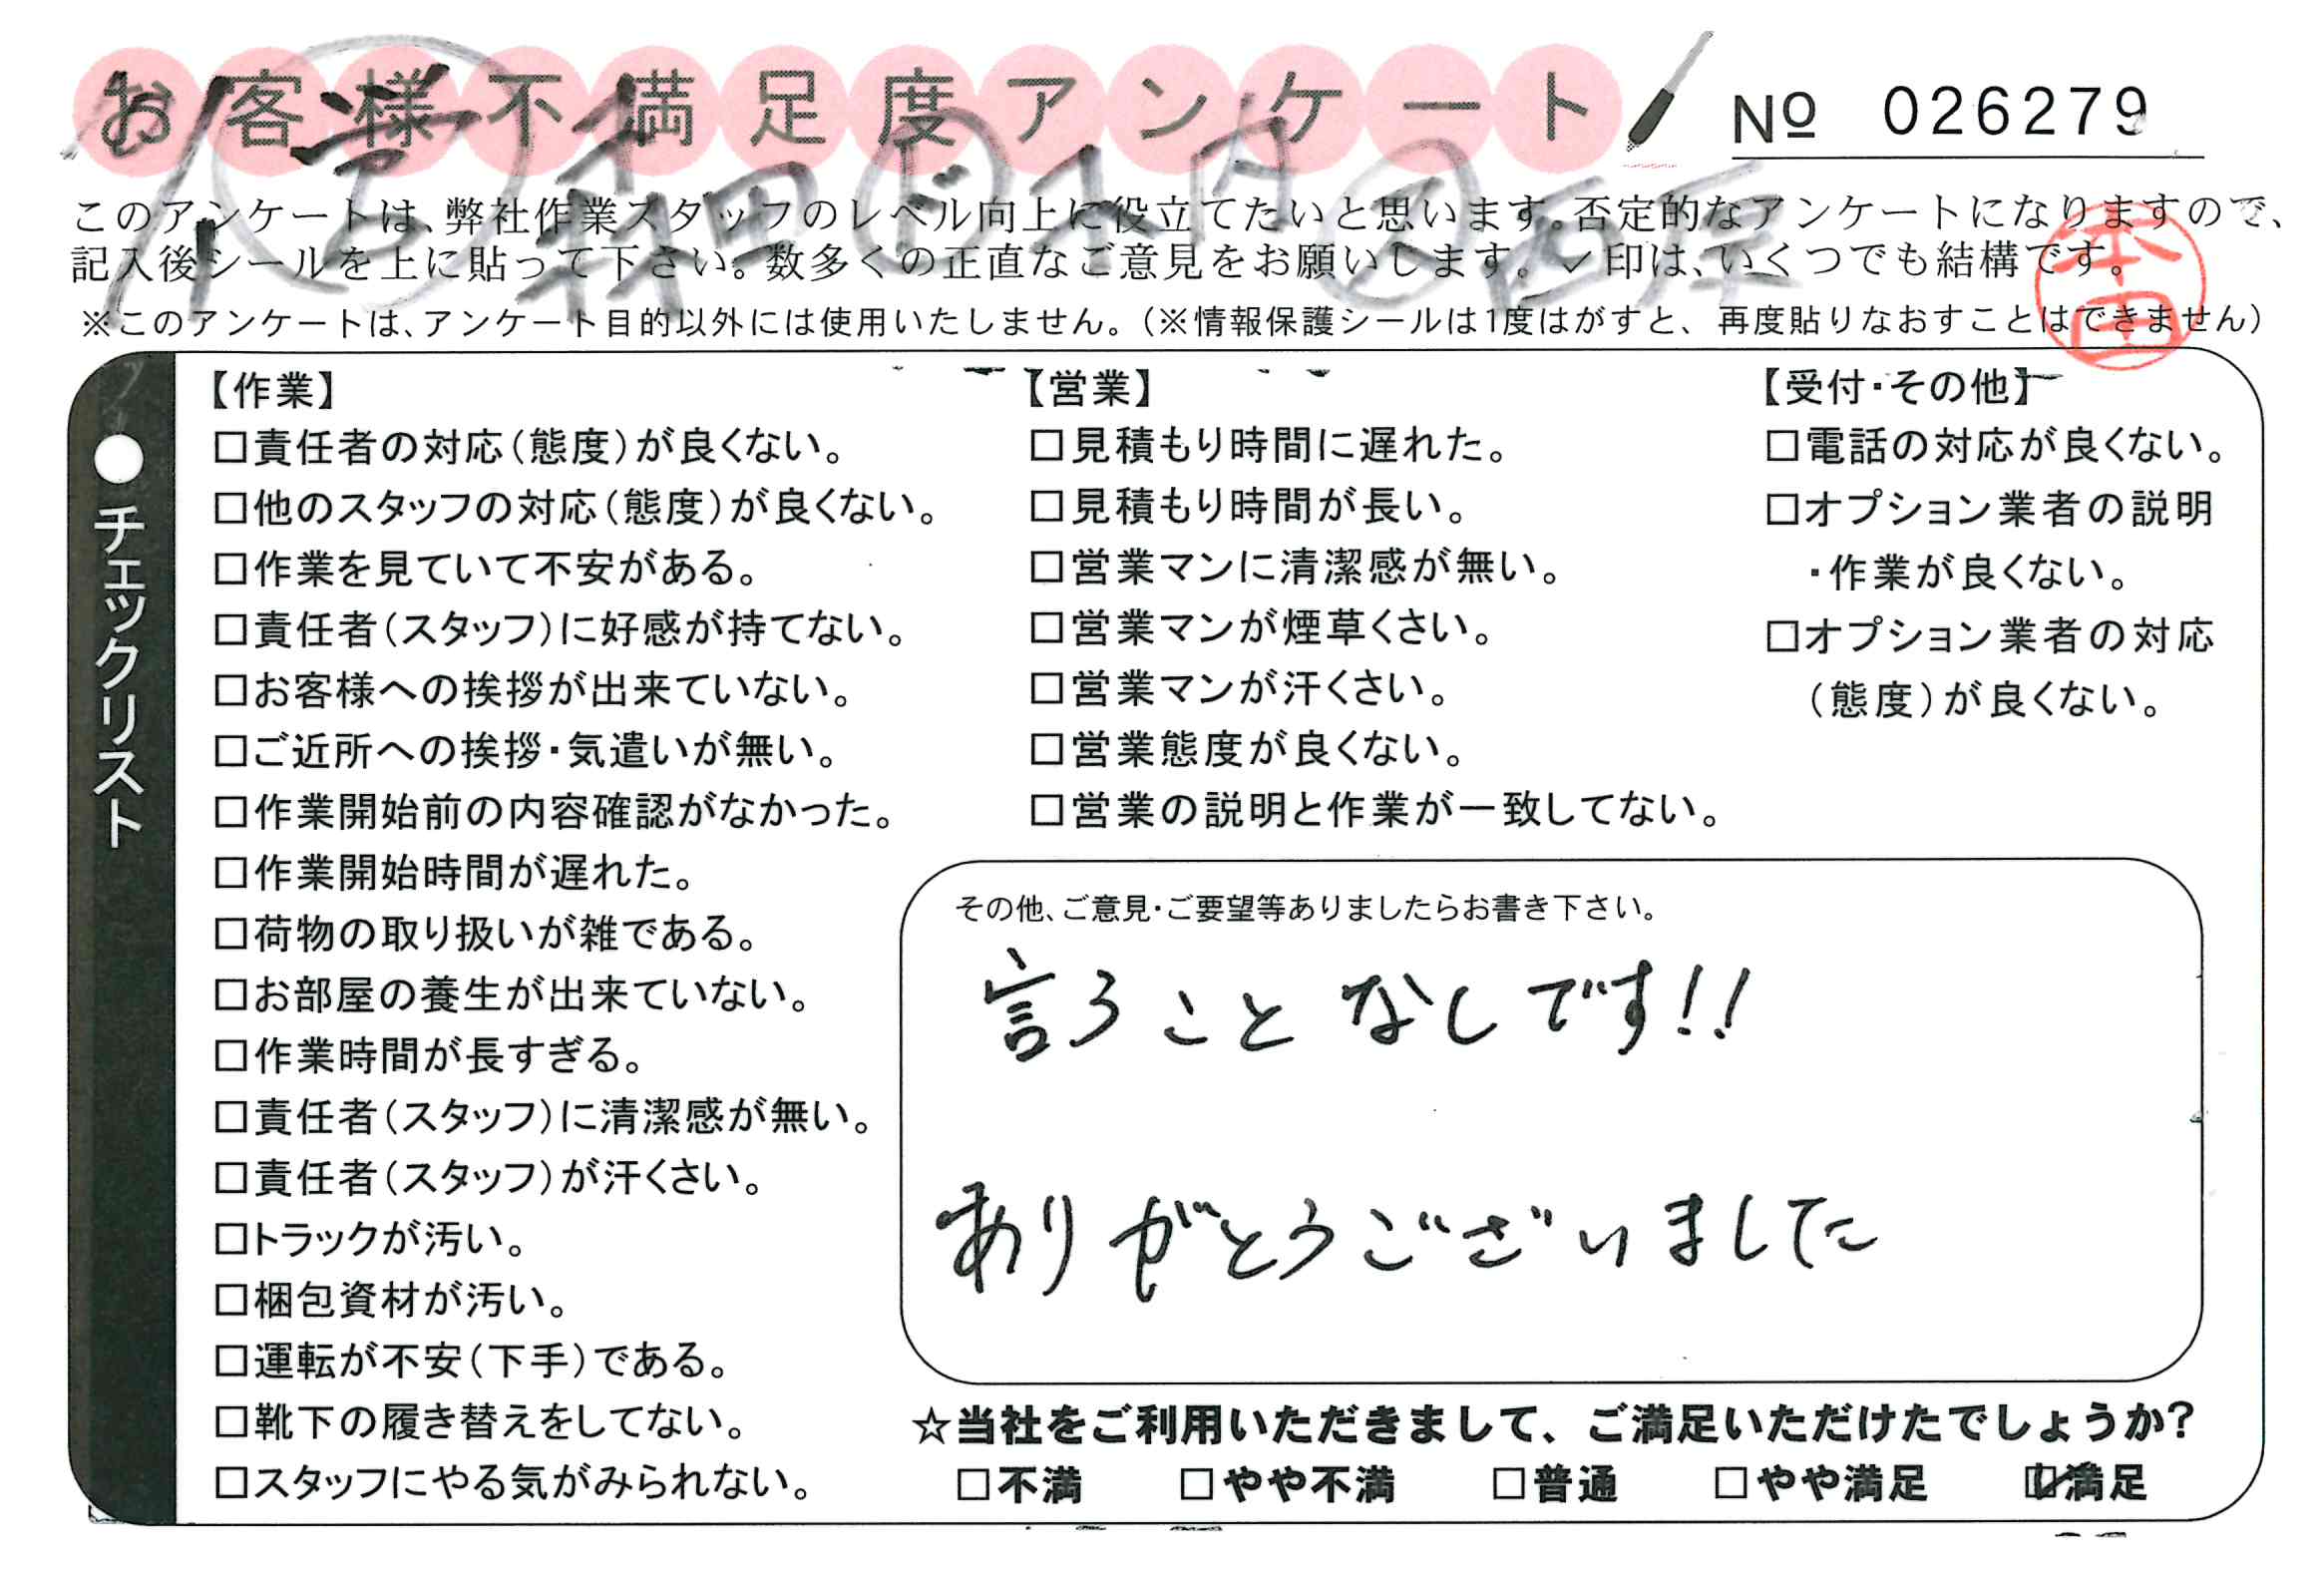 お客様不満足度アンケート
No 026279
このアンケートは、弊社作業スタッフのレベル向上に役立てたいと思います。否定的なアンケートになりますので、
記入後シールを上に貼って下さい。数多くの正直なご意見をお願いします。✓印は、いくつでも結構です。
本田
※このアンケートは、アンケート目的以外には使用いたしません。（※情報保護シールは1度はがすと、再度貼りなおすことはできません）
●チェックリスト
【作業】
□責任者の対応（態度）が良くない。
□他のスタッフの対応（態度）が良くない。
□作業を見ていて不安がある。
□責任者（スタッフ）に好感が持てない。
□お客様への挨拶が出来ていない。
□ご近所への挨拶・気遣いが無い。
□作業開始前の内容確認がなかった。
□作業開始時間が遅れた。
□荷物の取り扱いが雑である。
□お部屋の養生が出来ていない。
□作業時間が長すぎる。
□責任者（スタッフ）に清潔感が無い。
□責任者（スタッフ）が汗くさい。
□トラックが汚い。
□梱包資材が汚い。
□運転が不安（下手）である。
□靴下の履き替えをしてない。
□スタッフにやる気がみられない。
【営業】
□見積もり時間に遅れた。
□見積もり時間が長い。
□営業マンに清潔感が無い。
□営業マンが煙草くさい。
□営業マンが汗くさい。
□営業態度が良くない。
□営業の説明と作業が一致してない。
【受付・その他】
□電話の対応が良くない。
□オプション業者の説明
・作業が良くない。
□オプション業者の対応
（態度）が良くない。
その他、ご意見・ご要望等ありましたらお書き下さい。
言うことなしです!!
ありがとうございました
☆当社をご利用いただきまして、ご満足いただけたでしょうか?
□不満 □やや不満 □普通 □やや満足 ☑満足